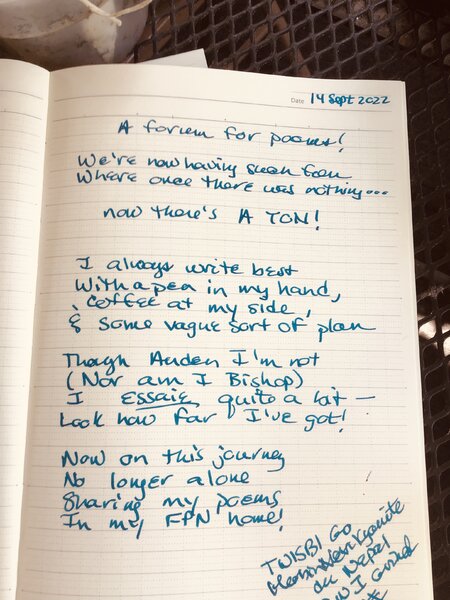 Date 14 Sept 2022
A forum for poems!
We're now having such fun
Where once there was nothing...
now there's A TON!
I always write best
With a pen in my hand,
coffee at my side,
& some vague sort of plan
Though Auden I'm not
(Nor am I Bishop)
I essaie quite a bit —
Look how far I've got!
Now on this journey
No longer alone
Sharing my poems
In my FPN home!
TWISBI GO
du Nepal
I